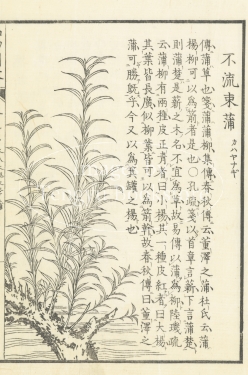 不流東蒲 カハヤナギ
傳、蒲草也、箋、蒲、蒲柳、集傳、春秋傳云、董澤之蒲、杜氏云、蒲
楊柳、可以爲箭者、是也、〇孔疏、箋、以首章言薪、下言蒲楚、
則蒲楚是薪之木名、不宜爲草、故易傳以蒲爲柳、陸璣疏
云、蒲柳有兩種、皮正青者曰小楊、其一種皮紅者曰大楊、
其葉皆長廣似柳葉、皆可以爲箭幹、故春秋傳曰、董澤之
蒲、可勝既乎、今又以爲箕罐之楊也、